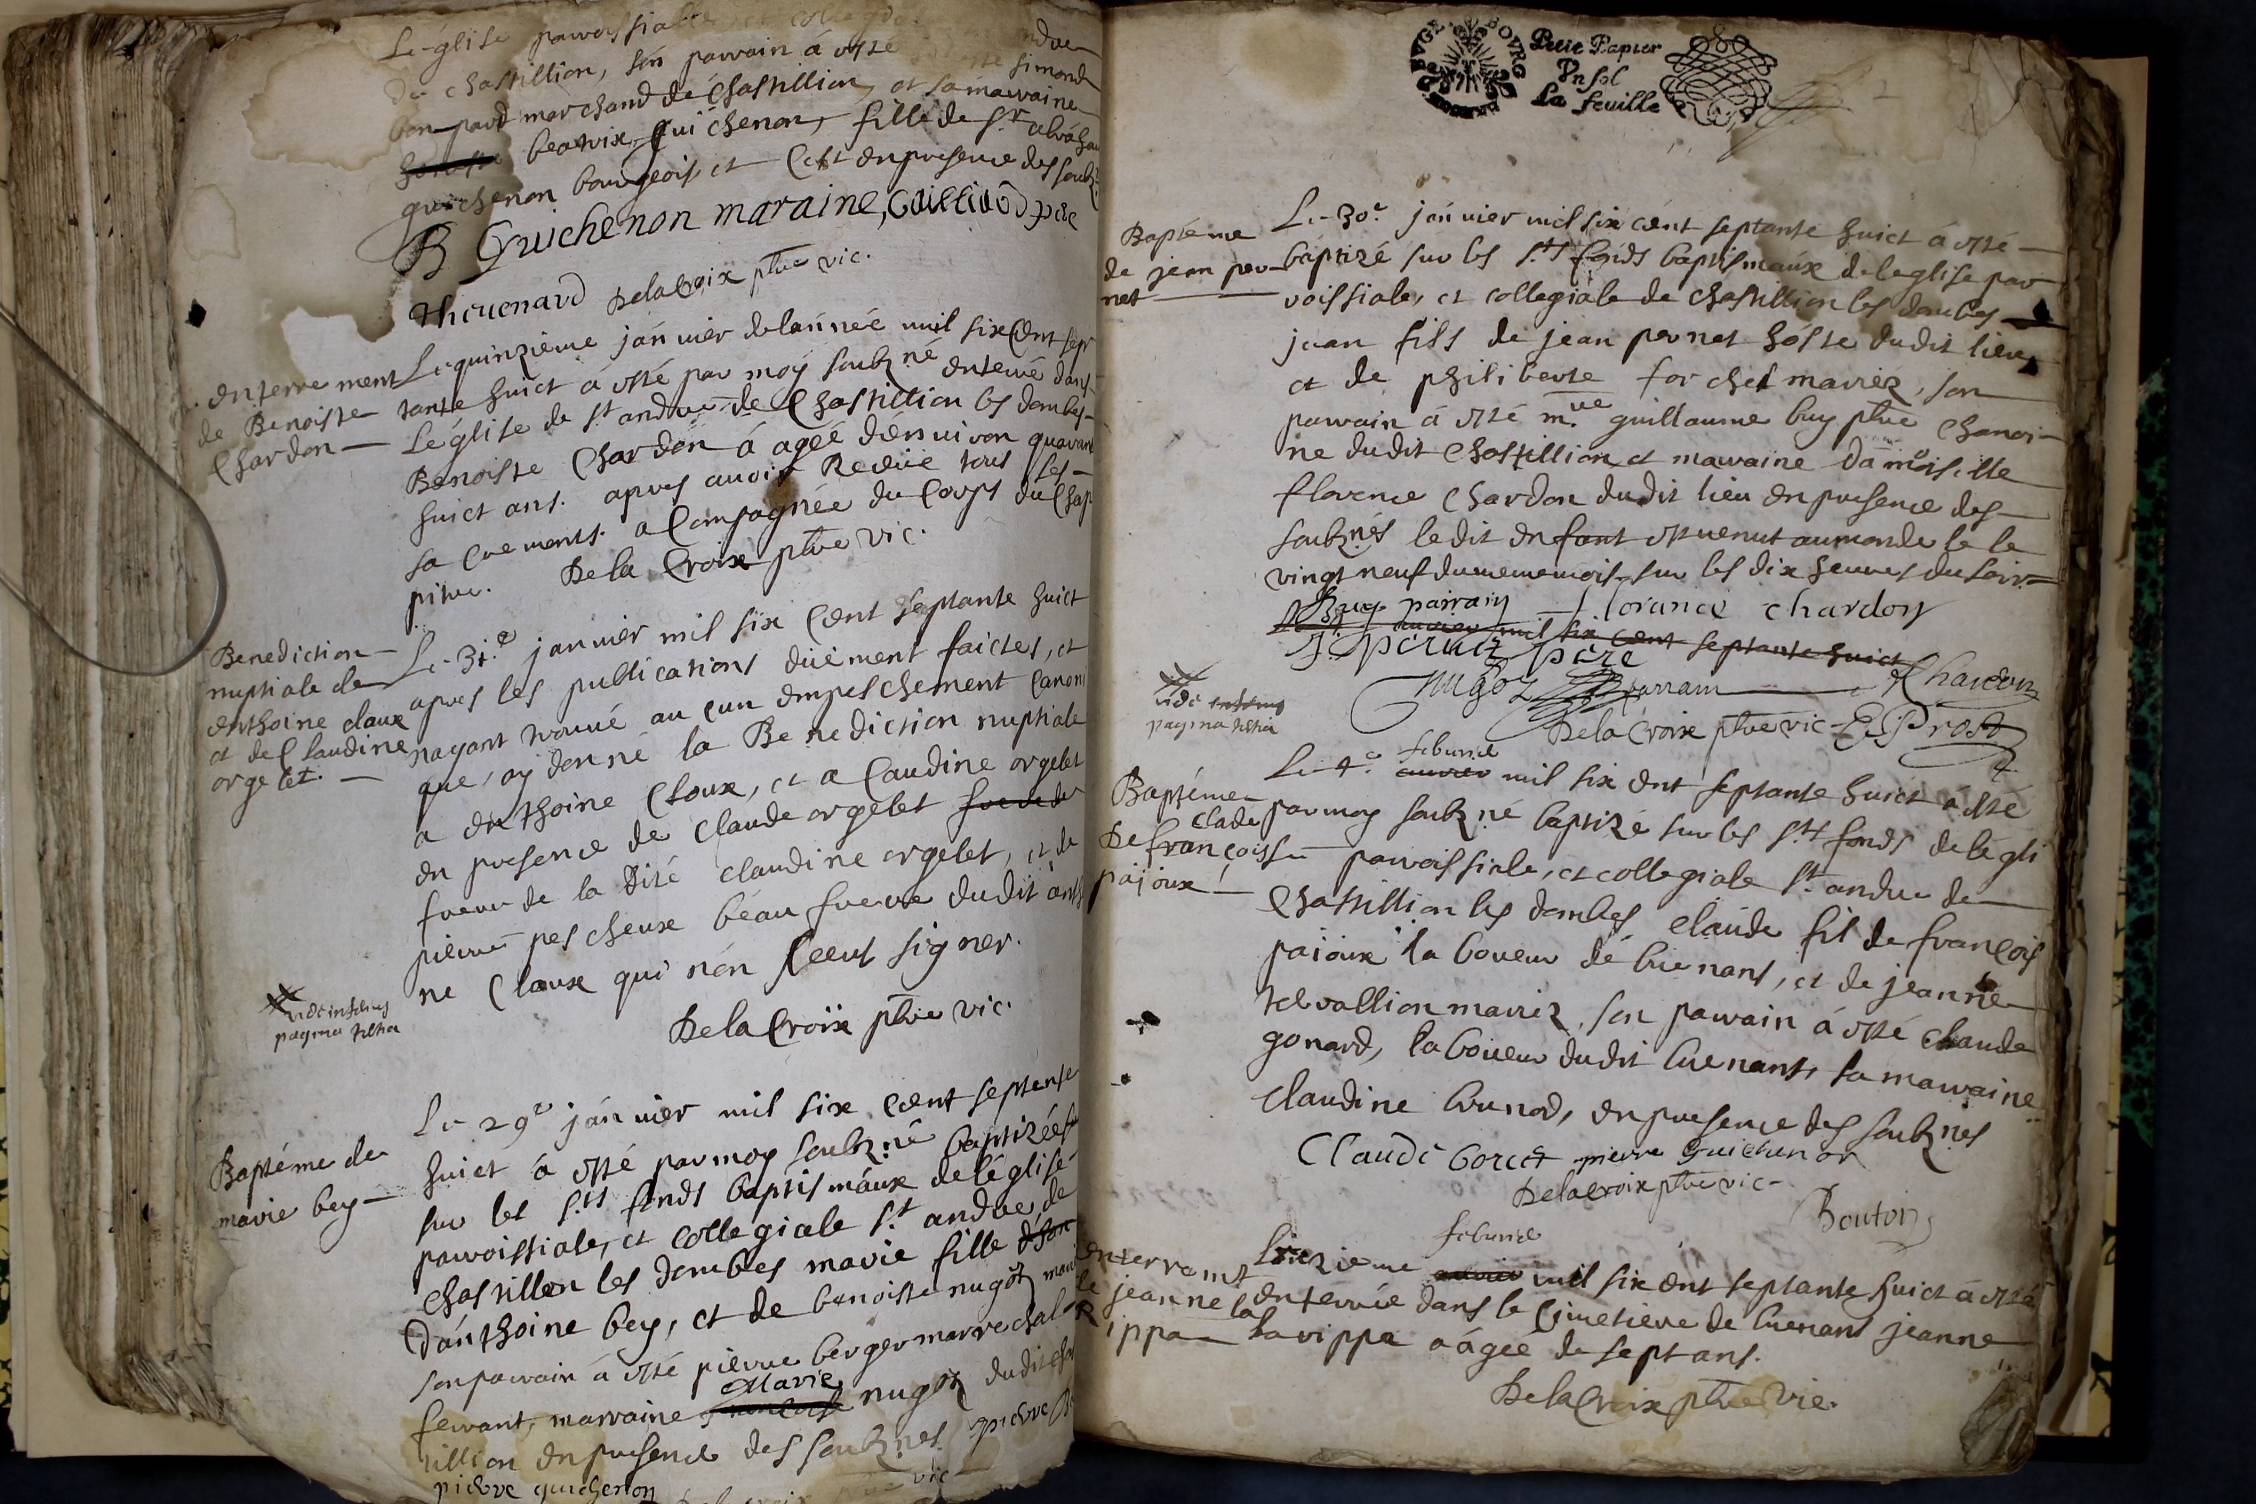 Leglise parroissialle et collegia
de Chastillion, son parrain á esté simond
bon pard marchand de Chastillion, et sa marraine
beatrix guichenon, fille de Sr abraha
guichenon bourgeois, et C'est en presence des soubz
B Guichenon maraine, père
Theuenard Delacroix ptre vic.
enterrement
de Benoiste
Chardon
Le quinzieme janvier de lannée mil six Cent sep
tante huict á esté par moy soubzné enterré dans
Léglise de st andre de Chastillion les dombes
Benoiste Chardon á agéé d'environ quarant
huict ans. apres avoir Receüe tous les
sacrements. aCompagnée du Corps du Chap
pitre. De la Croix ptre vic.
Benediction
nuptiale de
enthoine claux
et de Claudine
orgelet.
Le 31.e janvier mil six Cent septante huict
apres les publications düement faictes, et
nayant trouvé aucun empeschement Canoni
que, ay donné la Benediction nuptiale
a enthoine Cloux, et a Caudine orgelet
en presence de Claude orgelet frere de
frere de la dité Claudine orgelet, et de
pierre pescheux béau frerre dudit anth
ne Cloux qui n'en sceut signer.
Delacroix ptre vic.
vide
pagina tertia
Baptéme de
marie bey
Le 29e janvier mil six Cent septante
huict á esté par moy soubzné baptizée
sur les Sts fonds baptismaux de léglise
parroissiale, et collegiale St andre de
Chastillon les dombes marie fille d'hon
D'anthoine bey, et de benoiste nugoz mari
son parrain á esté pierre berger marrechal
ferrant, marraine Marie nugoz dudit Chas
tillion en presence des soubznés pierre
pierre guichenon
vic
BOVRG
Petit Papier
Vn sol
La feuille
Baptéme
de jean per
net
Le 30e janvier mil six cent septante huict á esté
baptizé sur les Sts fonds baptismaux de leglise par
roissiale, et collegiale de Chastillion les dombes
jean fils de jean pernet hoste dudit lieu,
et de philiberte forchet mariéz, son
parrain á esté m.re guillaume buy ptre Chanoi
ne dudit Chastillion et marraine damoiselle
florence Chardon dudit lieu en presence des
soubznés ledit enfant est venut au monde le le
vingt neuf du mememois sur les dix heures du soir
Buy parrain florance chardon
mil six cent septante huict
J. pernet père
nugoz Chardon
Delacroix ptre vic E Prost
vide
pagina tertia
Baptéme
Clade
De françois
pajoux
Le 4e febvrié mil six ent septante huict á esté
par moy soubzné baptizé sur les Sts fonds de légli
se parroissiale, et collegiale St andre de
Chastillion les dombes claude fil de françois
pajoux laboureur dé buenans, et de jeanne
tervallion mariéz, son parrain á esté claude
gonard, laboureur dudit buenans, sa marraine
Claudine brunod, en presence des soubznés
Claude Corcet pierre Guichenon
Delacroix ptre vic
Bouton
enterremt
de jeanne la
Rippa
febvrié mil six ent septante huict á esté
enterrée dans le Cimetiere de buenans jeanne
la rippa a ágee de sept ans.
Delacroix ptre Vic.